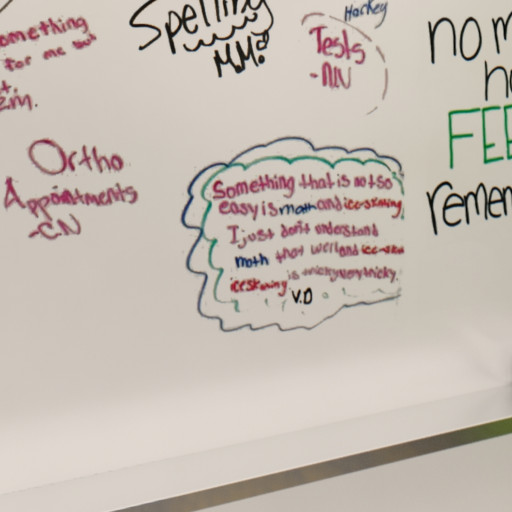 omething
for me
Em.
Spelling
M.M.
Hockey
Tests
-NN
no m
FEE
remem
Ortho
Appointments
-CN
Something that is not so
easy is math and ice-skating,
I just don't understand
math that well and ice-ska
iceskating is tricky very tricky.
V.D